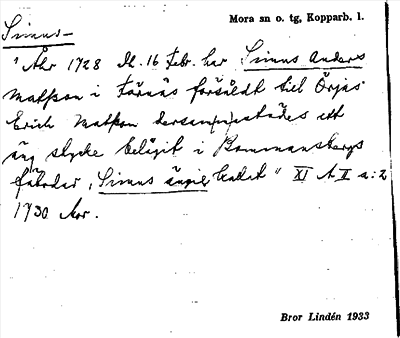 Mora sn o. tg, Kopparb. l.
Simus-
"Åhr 1728 d. 16 Febr. har Simus Anders
Matsson i Färnäs försåldt till Örjas
Erich Matsson dersammastädes ett
äng stycke beläget i Bommansbergs
fäbodar, Simus ängie kallat" XI A II a:2
1730 Mor.
Bror Lindén 1933